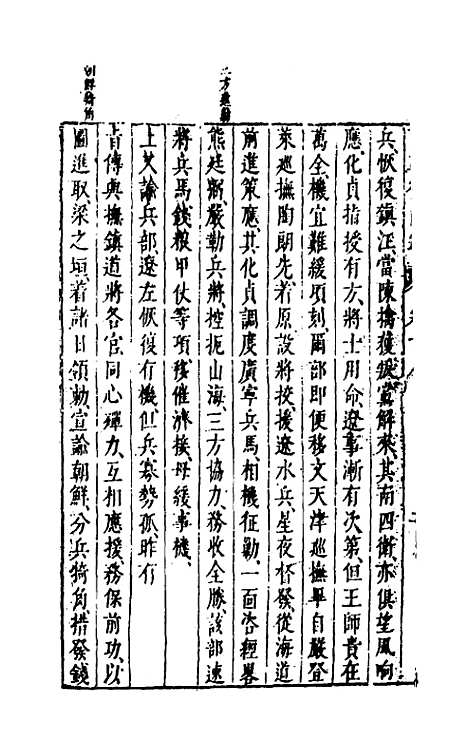 三方進勦
別鮮犄角
兵恢復鎮江當陳擒獲叛黨解來其南四衛亦俱望風响
應化貞指授有方將士用命遼事漸有次第但王師貴在
萬全機宜難緩頃刻爾部即便移文天津巡撫畢自嚴登
萊巡撫陶朗先若原設將校援遼水兵星夜督發從海道
前進策應其化貞調度廣寧兵馬相機征勦一面咨經畧
熊廷弼嚴勒兵將控扼山海三方協力務收全勝該部速
將兵馬錢粮甲仗等項移催濟接毋緩事機
上又諭兵部遼左恢復有機但兵寡勢孤昨有
旨傳與撫鎮道將各官同心殫力互相應援務保前功以
圖進取梁之垣着諸日領勅宣諭朝鮮分兵犄角措發錢